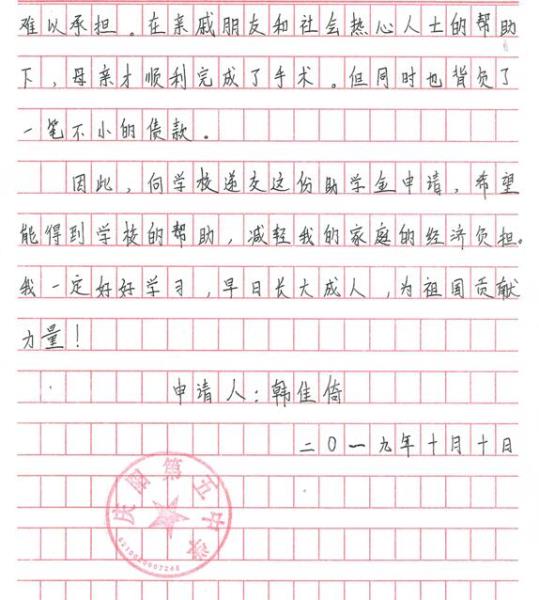 难以承担。在亲戚朋友和社会热心人士的帮助
下，母亲才顺利完成了手术。但同时也背负了
一笔不小的债款。
因此，向学校递交这份助学金申请，希望
能得到学校的帮助，减轻我的家庭的经济负担。
我一定好好学习，早日长大成人，为祖国贡献
力量！
申请人：韩佳倚
二〇一九年十月十日
庆阳第五中学